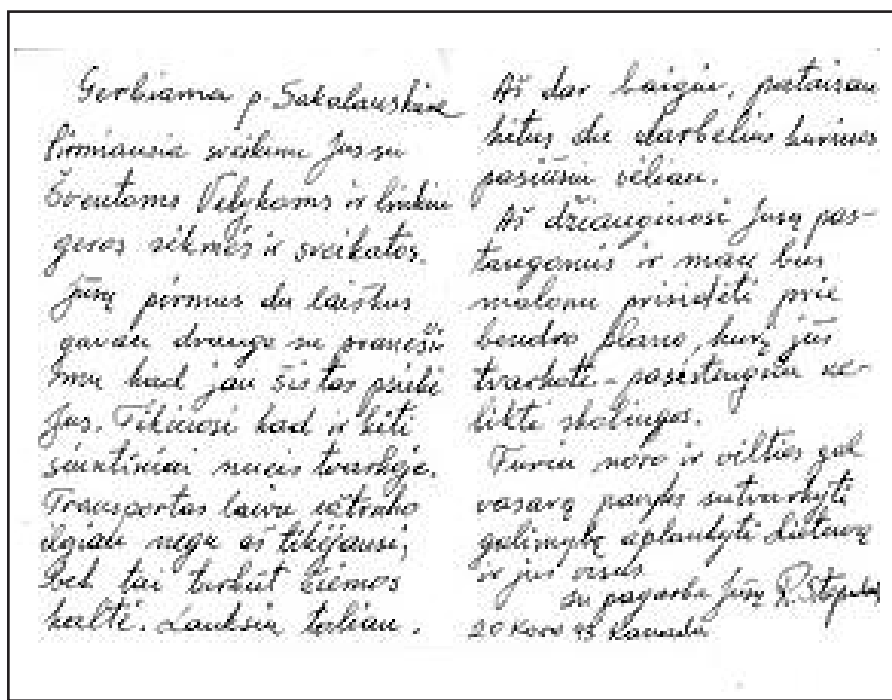 Gerbiama p. Sakalauskiene
Pirmiausia sveikinu Jus su
Šventoms Velykoms ir linkiu
geros sėkmės ir sveikatos.
Jūsų pirmus du laiškus
gavau drauge su praneši
mu kad jau šis tas priėjė
Jus. Tikiuosi kad ir kiti
siuntiniai nueis tvarkoje.
Transportas laivu užtruko
ilgiau negu aš tikėjausi,
bet tai turbūt žiemos
kaltė. Lauksiu toliau.
Aš dar baigiu, pataisau
kitus du darbelius kuriuos
pasiūsiu vėliau.
Aš džiauginosi Jūsų pas-
tangomis ir man bus
malonu prisidėti prie
bendro plano, kurį jūs
tvarkote - pasistengsiu ne-
likti skolingas.
Turiu noro ir vilties gal
vasarą pavyks sutvarkyti
galimybę aplankyti Lietuvą
ir jus visus
su pagarba Jūsų R.
20 Kovo 93 Kanada